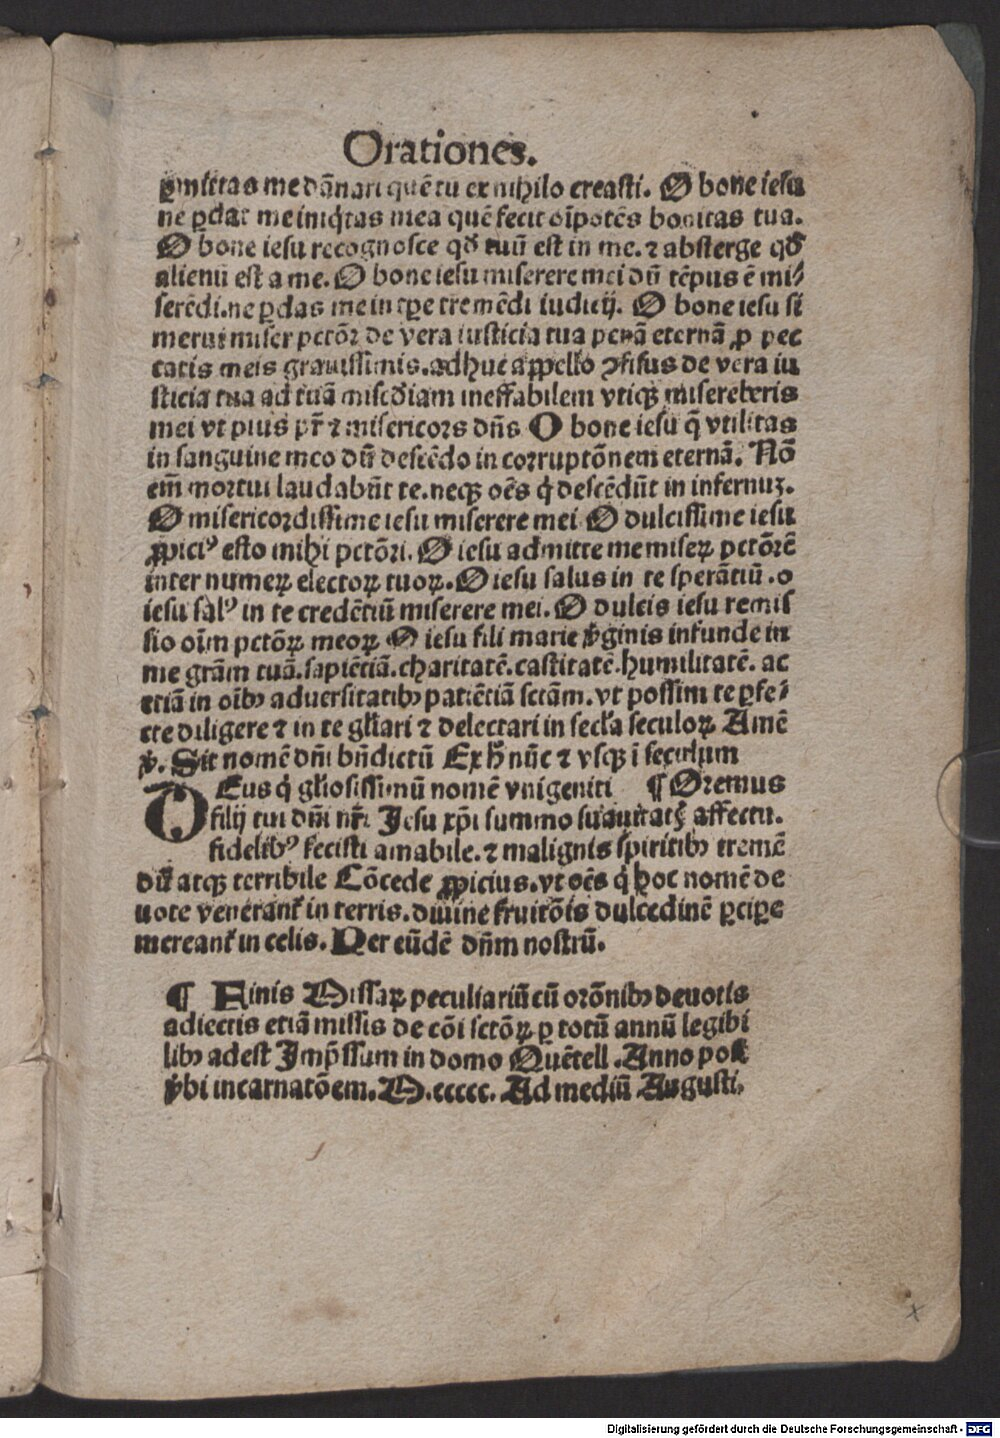 Orationes.
ꝑmittas me dānari quē tu ex nihilo creasti. O bone iesu
ne ꝑdat me iniqͥtas mea quē fecit oīpotēs bonitas tua.
O bone iesu recognosce qđ tuū est in me. ⁊ absterge qđ
alienū est a me. O bone iesu miserere mei dū tēpus ē mi/
serēdi. ne ꝑdas me in tꝑe tremēdi iudicij. O bone iesu si
merui miser pctōꝛ de vera iusticia tua penā eternā ꝓ pec
catis meis grauissimis. adhuc aꝓpello ꝯfisus de vera iu
sticia tua ad tuā misc̄diam ineffabilem vtiqꝫ misereberis
mei vt pius pr̄ ⁊ misericors dn̄s O bone iesu q̄ vtilitas
in sanguine meo dū descēdo in corruptōnem eternā. Nō
em̄ mortui laudabūt te. neqꝫ oēs qͥ descēdūt in infernuꝫ.
O misericordissime iesu miserere mei O dulcissime iesu
ꝓpiciꝰ esto mihi pctōri. O iesu admitte me miseꝝ pctōrē
inter numeꝝ electoꝝ tuoꝝ. O iesu salus in te sperātiū. o
iesu salꝰ in te credētiū miserere mei. O dulcis iesu remis
sio oīm pctōꝝ meoꝝ O iesu fili marie ꝟginis infunde in
me grām tuā. sapiētiā. charitatē. castitatē. humilitatē. ac
etiā in oībꝫ aduersitatibꝫ patiētiā sctām. vt possim te ꝑfe/
cte diligere ⁊ in te gl̄iari ⁊ delectari in secl̄a seculoꝝ Amē
ꝟ. Sit nomē dn̄i bn̄dictū Ex h̄ nūc ⁊ vsqꝫ ī seculum
DEus qͥ gl̄iosissimū nomē vnigeniti ¶ Oremus
filij tui dn̄i nr̄i Jesu xp̄i summo suauitatꝭ affectu.
fidelibꝰ fecisti amabile. ⁊ malignis spiritibꝫ tremē
dū atqꝫ terribile Cōcede ꝓpicius. vt oēs qͥ hoc nomē de
uote venerant᷑ in terris. diuine fruitōis dulcedinē ꝑciꝑe
mereant᷑ in celis. Per eūdē dn̄m nostrū.
¶ Finis Missaꝝ peculiariū cū orōnibꝫ deuotis
adiectis etiā missis de cōi sctōꝝ ꝑ totū annū legibi
libꝫ adest Jmp̄ssum in domo Quētell. Anno post
ꝟbi incarnatōem. M.ccccc. Ad mediū Augusti.
Digitalisierung gefördert durch die Deutsche Forschungsgemeinschaft - DFG